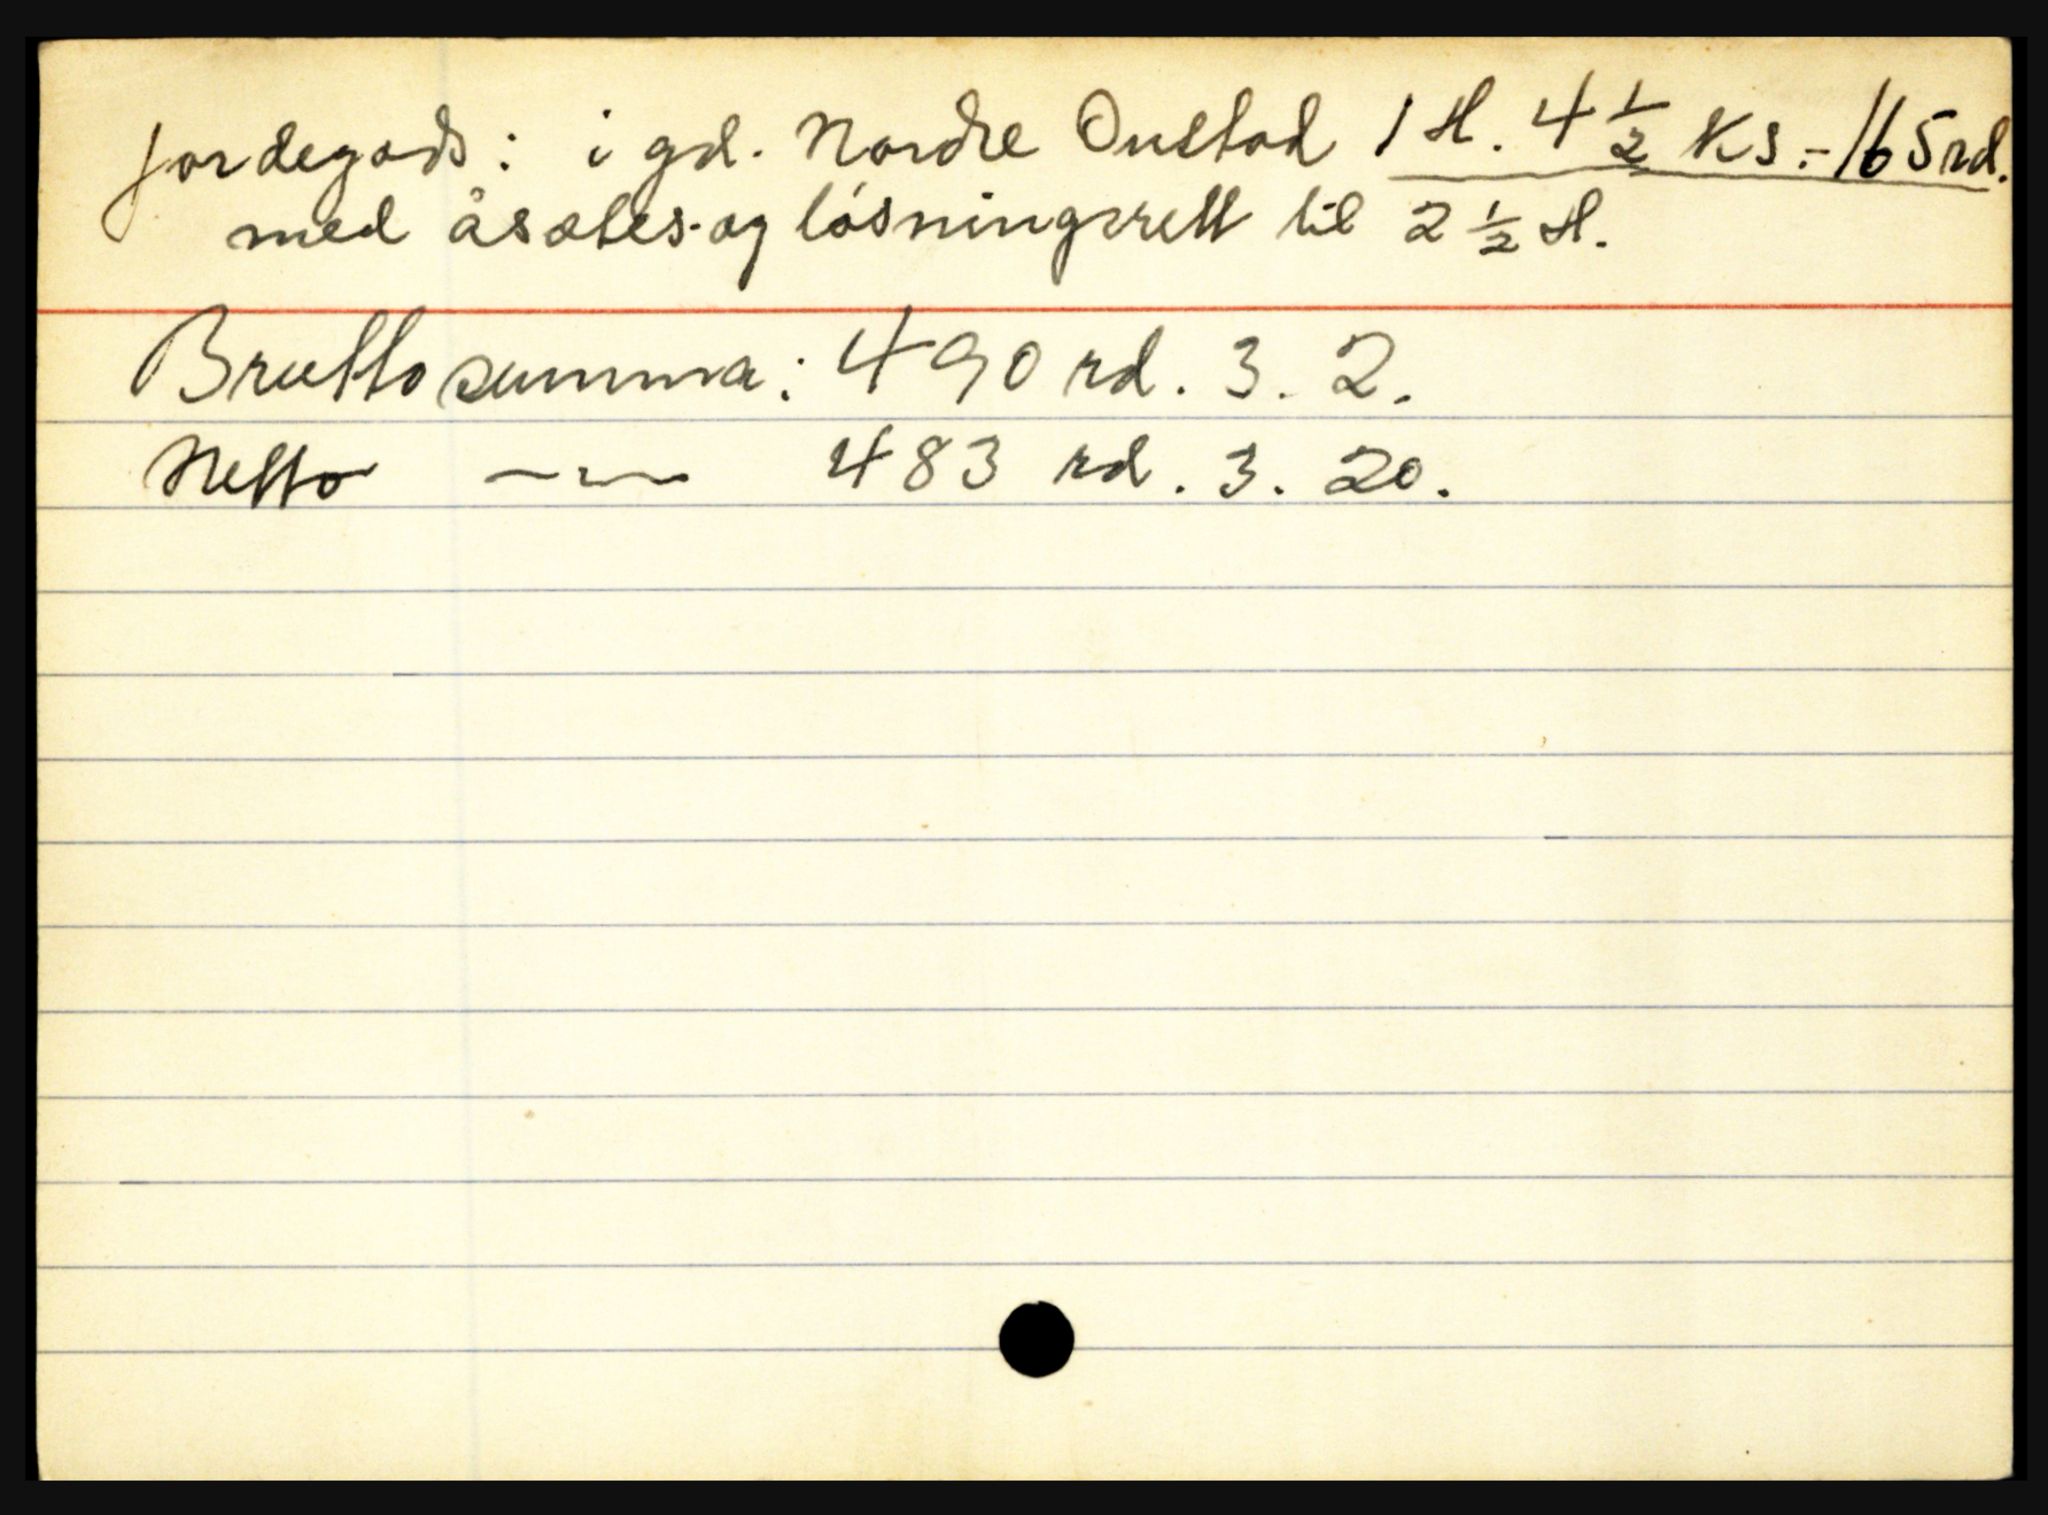 jordegods: i gd. Nordre Onstad 1 H. 4 1/2 Ks.- 165 rd.
med åsætes- og løsningsrett til 2 1/2 H.
Bruttosumma: 490 rd. 3. 2.
Netto —"— 483 rd. 3. 20.